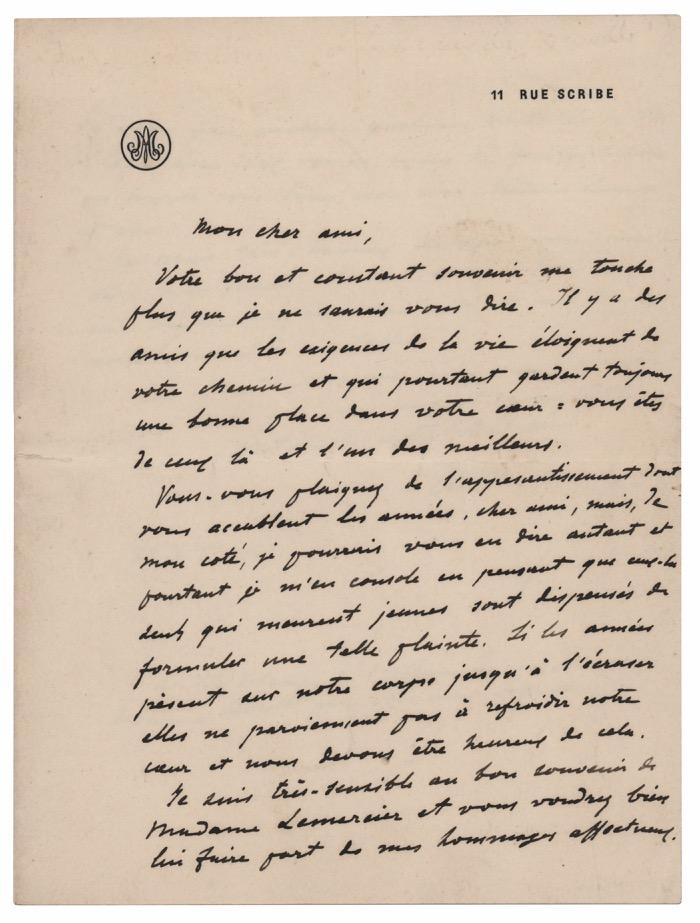 11 RUE SCRIBE
Mon cher ami,
Votre bon et constant souvenir me touche
plus que je ne saurais vous dire. Il y a des
amis que les exigences de la vie éloignent de
votre chemin et qui pourtant gardent toujours
une bonne place dans votre cœur : vous êtes
de ceux là et l'un des meilleurs.
Vous-vous plaignez de l'appesantissement dont
vous accablent les années, cher ami, mais, de
mon coté, je pourrais vous en dire autant et
pourtant je m'en console en pensant que ceux-là
seuls qui meurent jeunes sont dispensés de
formuler une telle plainte. Si les années
pèsent sur notre corps jusqu'à l'écraser
elles ne parviennent pas à refroidir notre
cœur et nous devons être heureux de cela.
Je suis très-sensible au bon souvenir de
Madame Lemercier et vous voudrez bien
lui faire part de mes hommages affectueux.